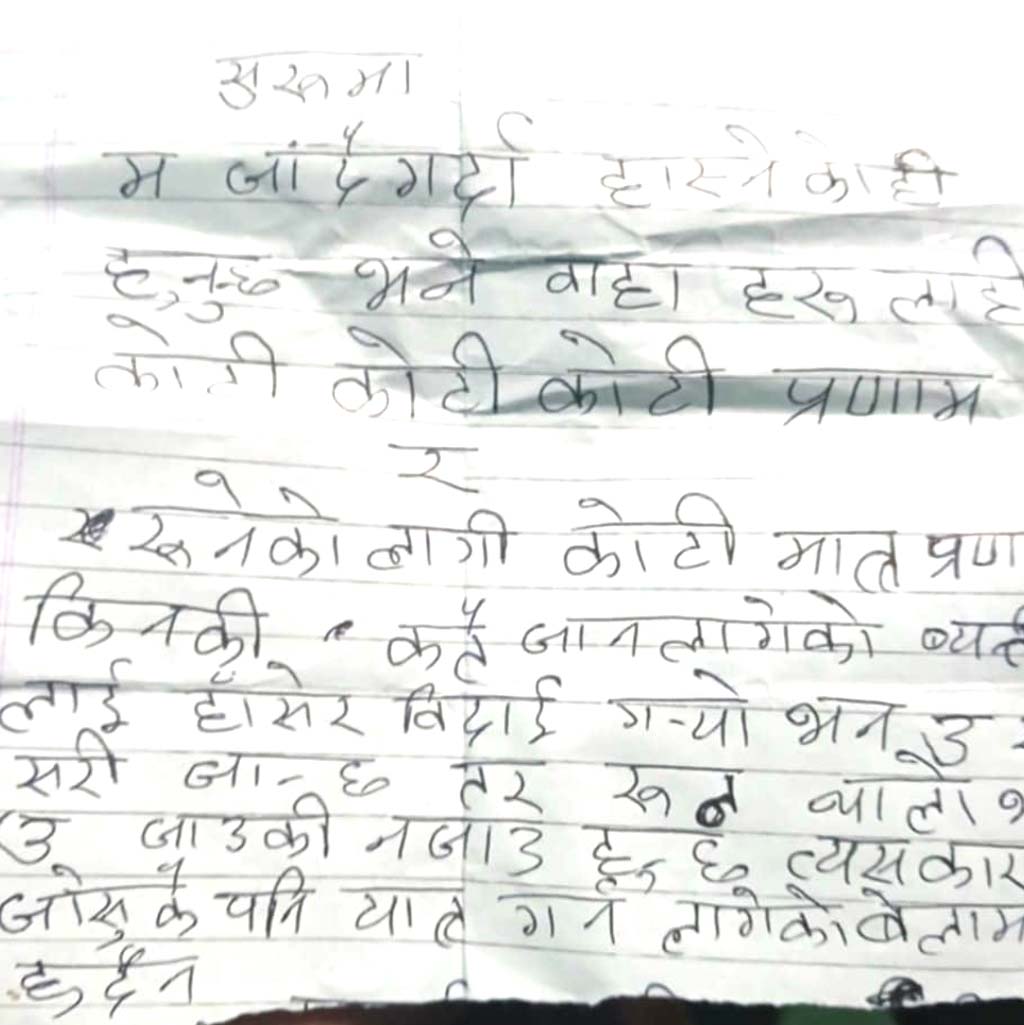 सुरूमा
म जांदै गर्दा हास्ने कोही
हुनुन्छ भने वाहा हरू लाही
कोटी कोटी कोटी प्रणाम
र
रूनेको लागी कोटी मात्र प्रण
किनकी कतै जान लागेको
लाई हाँसेर विदाई गर्‍यो भने उ
सरी जान्छ तर रून थालो
उ जाउकी नजाउ हुन्छ त्यसकार
जोसुकै पनि यात्र गर्न लागेको बेलाम
हुदैन